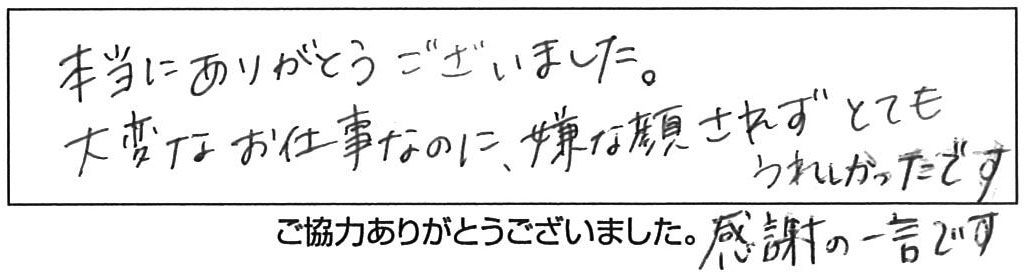 本当にありがとうございました。
大変なお仕事なのに、嫌な顔されずとても
うれしかったです
ご協力ありがとうございました。感謝の一言です